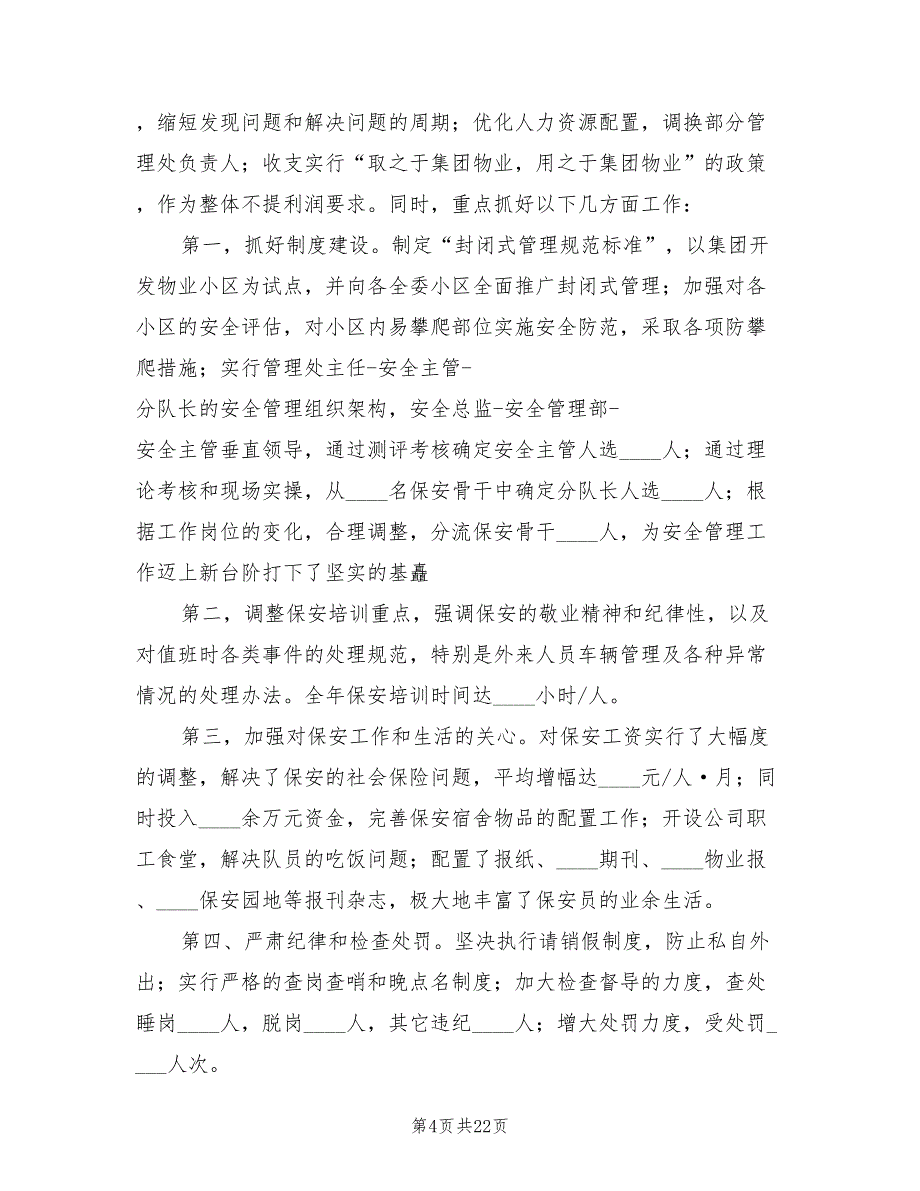 ，缩短发现问题和解决问题的周期；优化人力资源配置，调换部分管
理处负责人；收支实行“取之于集团物业，用之于集团物业”的政策
，作为整体不提利润要求。同时，重点抓好以下几方面工作：
第一，抓好制度建设。制定“封闭式管理规范标准”，以集团开
发物业小区为试点，并向各全委小区全面推广封闭式管理；加强对各
小区的安全评估，对小区内易攀爬部位实施安全防范，采取各项防攀
爬措施；实行管理处主任-安全主管-
分队长的安全管理组织架构，安全总监-安全管理部-
安全主管垂直领导，通过测评考核确定安全主管人选____人；通过理
论考核和现场实操，从____名保安骨干中确定分队长人选____人；根
据工作岗位的变化，合理调整，分流保安骨干____人，为安全管理工
作迈上新台阶打下了坚实的基矗
第二，调整保安培训重点，强调保安的敬业精神和纪律性，以及
对值班时各类事件的处理规范，特别是外来人员车辆管理及各种异常
情况的处理办法。全年保安培训时间达____小时/人。
第三，加强对保安工作和生活的关心。对保安工资实行了大幅度
的调整，解决了保安的社会保险问题，平均增幅达____元/人·月；同
时投入____余万元资金，完善保安宿舍物品的配置工作；开设公司职
工食堂，解决队员的吃饭问题；配置了报纸、____期刊、____物业报
、____保安园地等报刊杂志，极大地丰富了保安员的业余生活。
第四、严肃纪律和检查处罚。坚决执行请销假制度，防止私自外
出；实行严格的查岗查哨和晚点名制度；加大检查督导的力度，查处
睡岗____人，脱岗____人，其它违纪____人；增大处罚力度，受处罚_
___人次。
第4页共22页